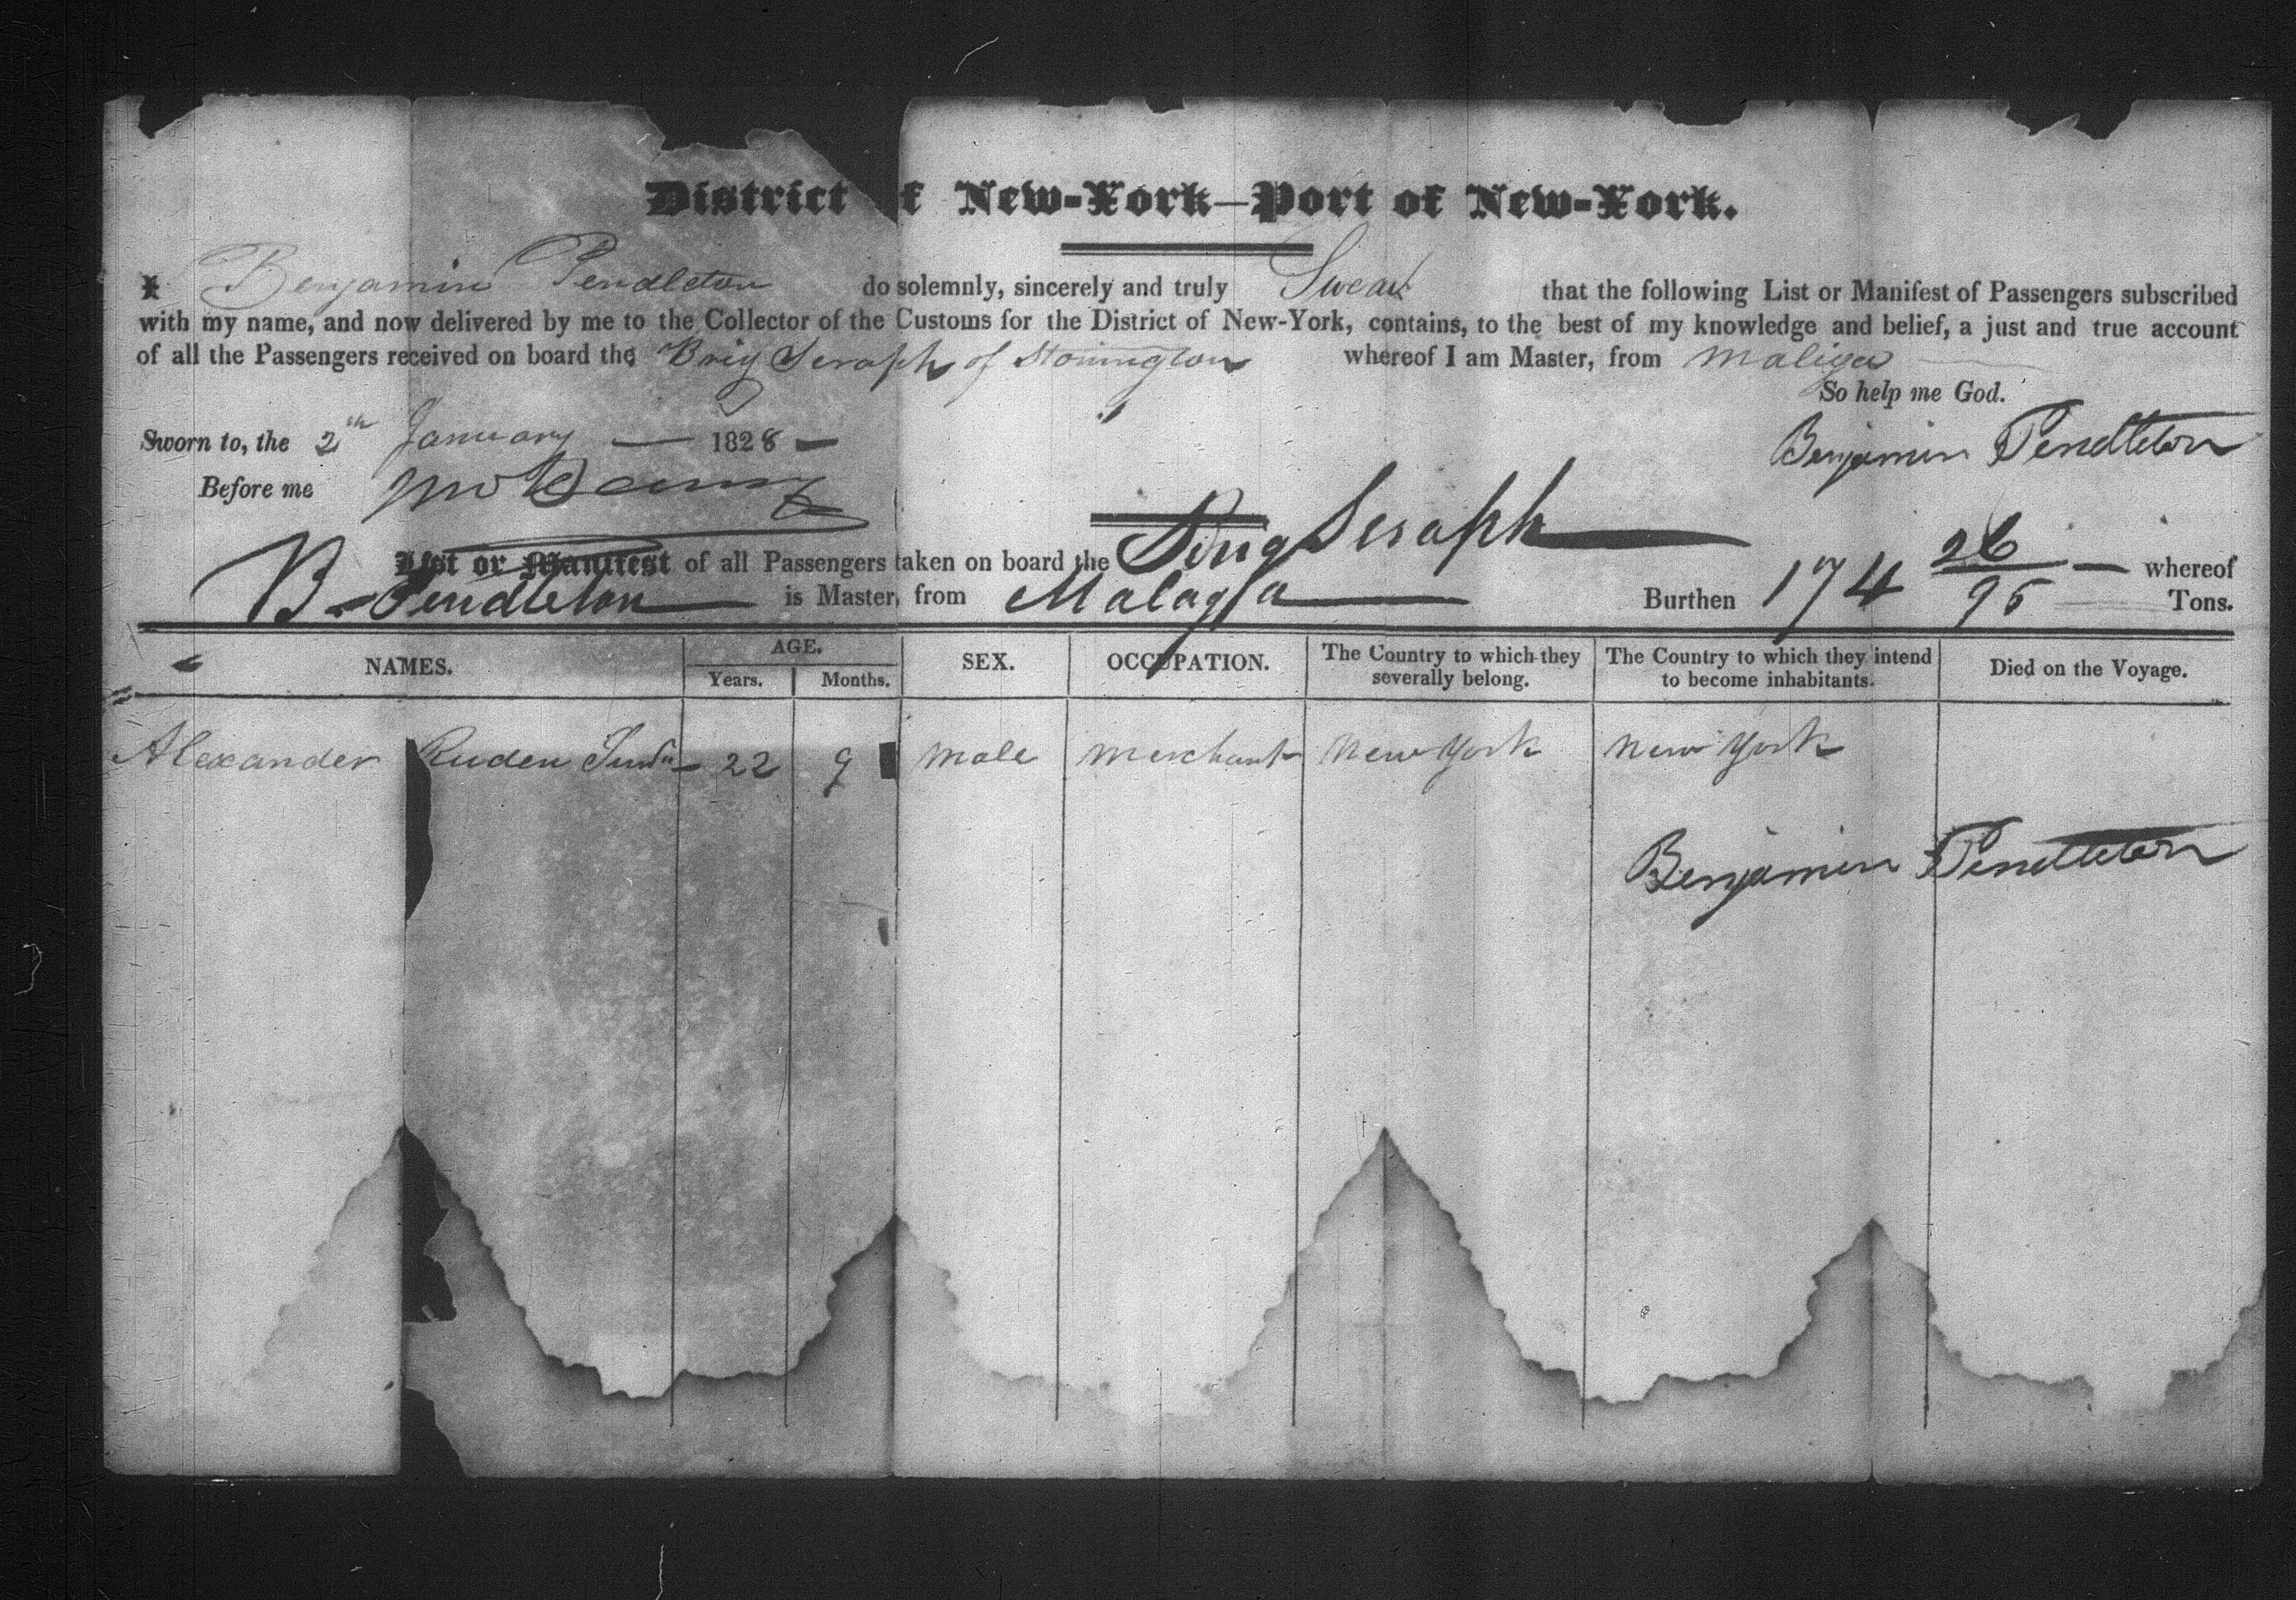 District of New-York—Port of New-York.
I Benjamin Pendleton do solemnly, sincerely and truly Swear that the following List or Manifest of Passengers subscribed
with my name, and now delivered by me to the Collector of the Customs for the District of New-York, contains, to the best of my knowledge and belief, a just and true account
of all the Passengers received on board the Brig Seraph of Stonington whereof I am Master, from Maliga
So help me God.
Sworn to, the 2th January — 1828 — Benjamin Pendleton
Before me
List or Manifest of all Passengers taken on board the Brig Seraph — Burthen 174 26/95 — whereof
B. Pendleton — is Master, from Malaga — Tons.
NAMES. AGE. Years. Months. SEX. OCCUPATION. The Country to which they severally belong. The Country to which they intend to become inhabitants. Died on the Voyage.
Alexander Ruden — 22 9 Male Merchant New York New York
Benjamin Pendleton